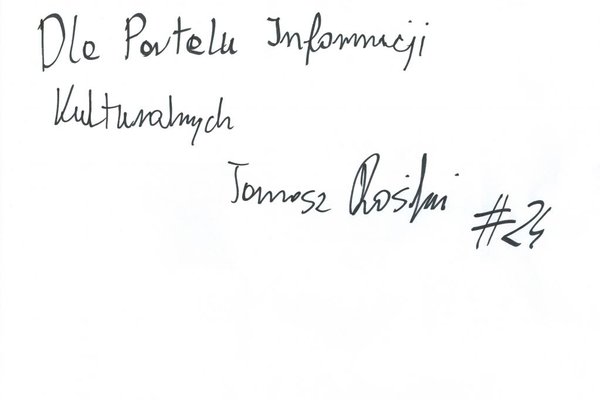 Dla Portalu Informacji
Kulturalnych
Tomasz #24